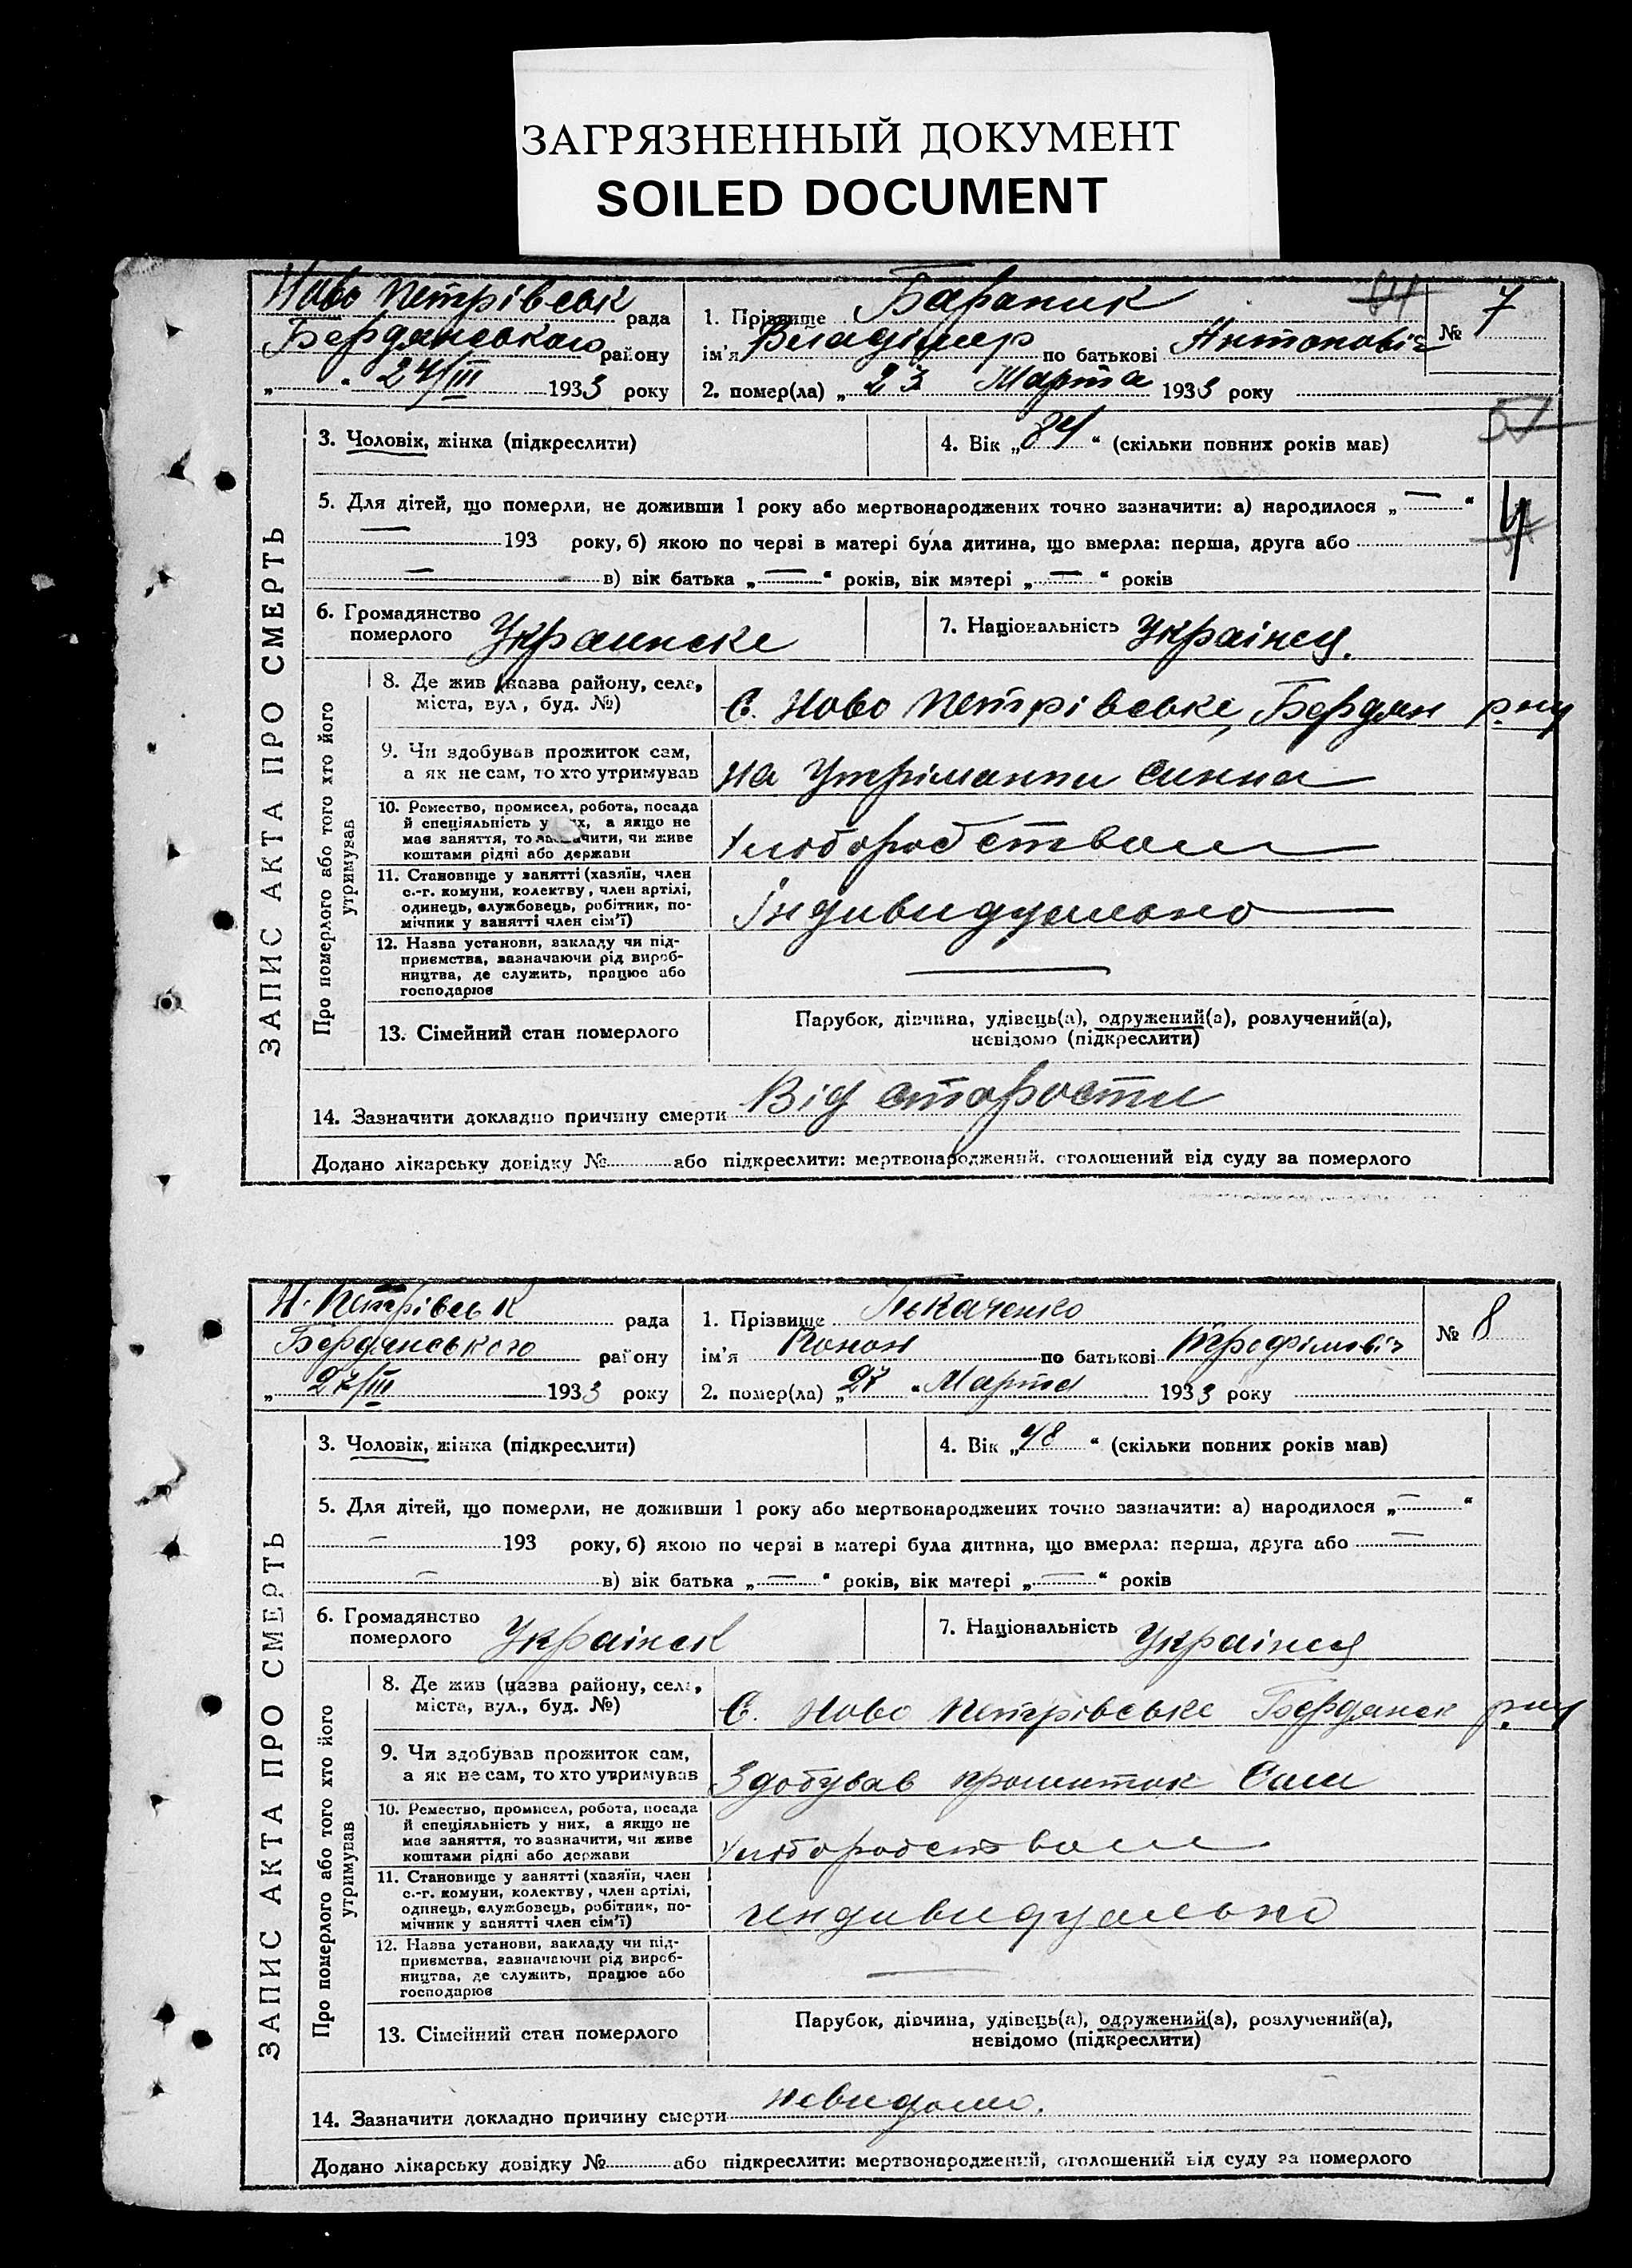 ЗАГРЯЗНЕННЫЙ ДОКУМЕНТ
SOILED DOCUMENT
ЗАПИС АКТА ПРО СМЕРТЬ
Ново Петрівськ рада
Бердянського району
„ “ 24/III 1933 року
1. Прізвище Бараник
ім'я Владімер по батькові Антоновіч
№ 7
2. помер(ла) „ 23 Марта 1933 року
3. Чоловік, жінка (підкреслити)
4. Вік „84“ (скільки повних років мав)
5. Для дітей, що померли, не доживши 1 року або мертвонароджених точно зазначити: а) народилося „—“
— 193 року, б) якою по черзі в матері була дитина, що вмерла: перша, друга або
— в) вік батька „—“ років, вік матері „—“ років
6. Громадянство
померлого Украинске
7. Національність Украінец.
Про померлого або того хто його
утримував
8. Де жив (назва району, села,
міста, вул., буд. №)
С. Ново Петрівське, Бердян р-ну
9. Чи здобував прожиток сам,
а як не сам, то хто утримував
На Утріманни синна
10. Ремество, промисел, робота, посада
й спеціяльність у них, а якщо не
має заняття, то зазначити, чи живе
коштами рідні або держави
Хлібородством
11. Становище у занятті (хазяїн, член
с.-г. комуни, колективу, член артілі,
одинець, службовець, робітник, по-
мічник у занятті член сім'ї)
індивидуально
12. Назва установи, закладу чи під-
приємства, зазначаючи рід вироб-
ництва, де служить, працює або
господарює
—
13. Сімейний стан померлого
Парубок, дівчина, удівець(а), одружений(а), розлучений(а),
невідомо (підкреслити)
14. Зазначити докладно причину смерти Від старости
Додано лікарську довідку № або підкреслити: мертвонароджений, оголошений від суду за померлого
ЗАПИС АКТА ПРО СМЕРТЬ
Н. Петрівськ рада
Бердянського району
„ 27/III 1933 року
1. Прізвище Ткаченко
ім'я Конон по батькові
№ 8
2. помер(ла) „27“ Марта 1933 року
3. Чоловік, жінка (підкреслити)
4. Вік „48“ (скільки повних років мав)
5. Для дітей, що померли, не доживши 1 року або мертвонароджених точно зазначити: а) народилося „—“
— 193 року, б) якою по черзі в матері була дитина, що вмерла: перша, друга або —
— в) вік батька „—“ років, вік матері „—“ років
6. Громадянство
померлого Украінск
7. Національність Украінец
Про померлого або того хто його
утримував
8. Де жив (назва району, села,
міста, вул., буд. №)
С. Ново Петрівське Бердянск р-ну
9. Чи здобував прожиток сам,
а як не сам, то хто утримував
Здобував прожиток Сам
10. Ремество, промисел, робота, посада
й спеціяльність у них, а якщо не
має заняття, то зазначити, чи живе
коштами рідні або держави
Хлібородством
11. Становище у занятті (хазяїн, член
с.-г. комуни, колективу, член артілі,
одинець, службовець, робітник, по-
мічник у занятті член сім'ї)
индивидуально
12. Назва установи, закладу чи під-
приємства, зазначаючи рід вироб-
ництва, де служить, працює або
господарює
—
13. Сімейний стан померлого
Парубок, дівчина, удівець(а), одружений(а), розлучений(а),
невідомо (підкреслити)
14. Зазначити докладно причину смерти невидомо.
Додано лікарську довідку № або підкреслити: мертвонароджений, оголошений від суду за померлого